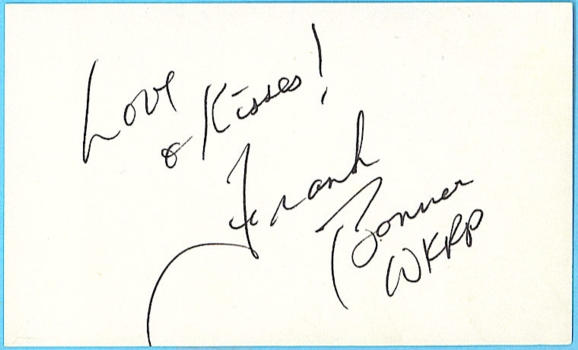 Love
& Kisses!
Frank
Bonner
WKRP